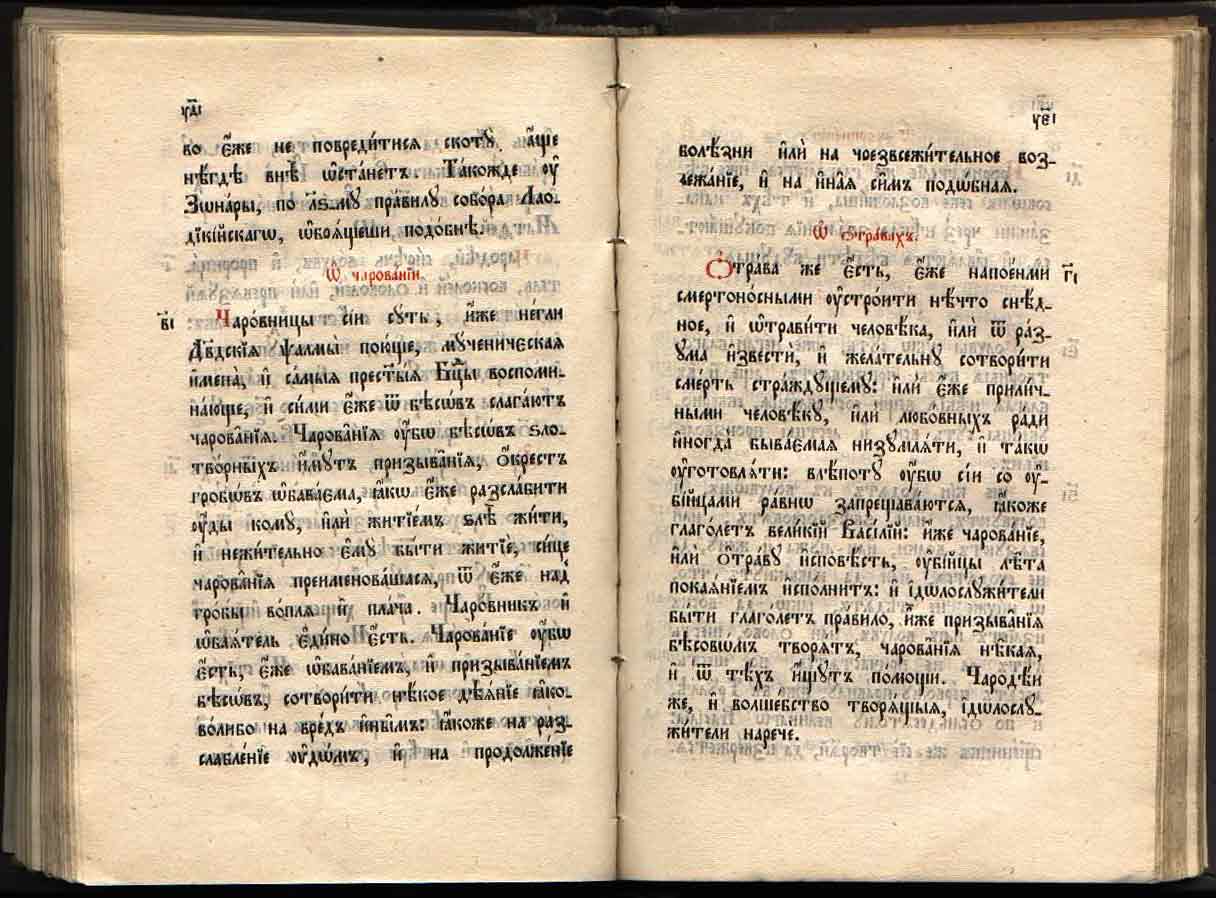 уд҃і
во є҆́же не повреди́тисѧ скотꙋ̀ а҆́ще
нѣ́гдѣ внѣ̀ ѡ҆ста́нетъ. Та́кожде оу҆
Зѡна́ры, по л҃ѕ_мꙋ пра́вилꙋ собо́ра Лао_
дїкі́йскагѡ, ѡ҆боѧ́щеши подо́бнѣ.
Ѡ҆ чарова́нїи
в҃і
Чаро́вницы сі́и сꙋ́ть, и҆̀же не́гли
Дв҃дскїѧ ѱалмы̀ пою́ще, мꙋ́ченическаѧ
и҆мена̀, и҆ са́мыѧ прест҃ы́ѧ Бц҃ы воспоми_
на́юще, и҆ си́ми є҆́же ѿ бѣсѡ́въ слага́ютъ
чарова́нїѧ. Чарова́нїѧ оу҆́бѡ бѣсѡ́въ ѕло_
тво́рныхъ и҆́мꙋтъ призыва́нїѧ, ѻ҆́крестъ
гробѡ́въ ѡ҆бава́ема, ꙗ҆́кѡ є҆́же разсла́бити
оу҆́ды комꙋ̀, и҆лѝ житїе́мъ ѕлѣ̀ жи́ти,
и҆ нежи́тельно є҆мꙋ̀ бы́ти житїѐ, си́це
чарова́нїѧ преименова́шасѧ, ѿ є҆́же над̾
гро́бы во́плѧ и҆ пла́ча. Чаро́вникъ и҆
ѡ҆баѧ́тель є҆ди́но є҆́сть. Чарова́нїе оу҆́бѡ
є҆́сть, є҆́же ѡ҆бава́нїемъ, и҆ призыва́нїемъ
бѣсѡ́въ, сотвори́ти нѣ́кое дѣѧ́нїе ꙗ҆ко_
воли́бо на вре́дъ и҆ны́мъ: ꙗ҆́коже на раз_
слабле́нїе оу҆дѡ́мъ, и҆ на продолже́нїе
уе҃і
болѣ́зни и҆лѝ на чрезвсежи́тельное воз_
лежа́нїе, и҆ на и҆на̑ѧ си̑мъ подѡ́бнаѧ.
Ѡ҆ ѻ҆тра́вахъ.
Ѻ҆тра́ва же є҆́сть, є҆́же напоє́нми
г҃і
смертоно́сными оу҆стро́ити нѣ́что снѣ́д_
ное, и҆ ѡ҆трави́ти человѣ́ка, и҆лѝ ѿ ра́з_
ума и҆звестѝ, и҆ жела́тельнꙋ сотвори́ти
сме́рть стра́ждꙋщемꙋ: и҆лѝ є҆́же прили́ч_
ными человѣ́кꙋ, и҆лѝ любо́вныхъ ра́ди
и҆ногда̀ быва́емаѧ низꙋмлѧ́ти, и҆ та́кѡ
оу҆готовлѧ́ти: влѣ́потꙋ оу҆́бѡ сі́и со оу҆_
бі́йцами ра́внѡ запреща́ваютсѧ, ꙗ҆́коже
глаго́летъ вели́кїй Васі́лїй: и҆́же чарова́нїе,
и҆лѝ ѻ҆тра́вꙋ и҆сповѣ́сть, оу҆бі́йцы лѣ́та
покаѧ́нїемъ и҆спо́лнитъ: и҆ і҆дѡлослꙋжи́тели
бы́ти глаго́летъ пра́вило, и҆̀же призыва́нїѧ
бѣсовѡ́мъ творѧ́тъ, чарова́нїѧ нѣ́каѧ,
и҆ ѿ тѣ́хъ и҆́щꙋтъ по́мощи. Чародѣ́и
же, и҆ волше́бство творѧ́щыѧ, і҆дѡлослꙋ_
жи́тели нарече.